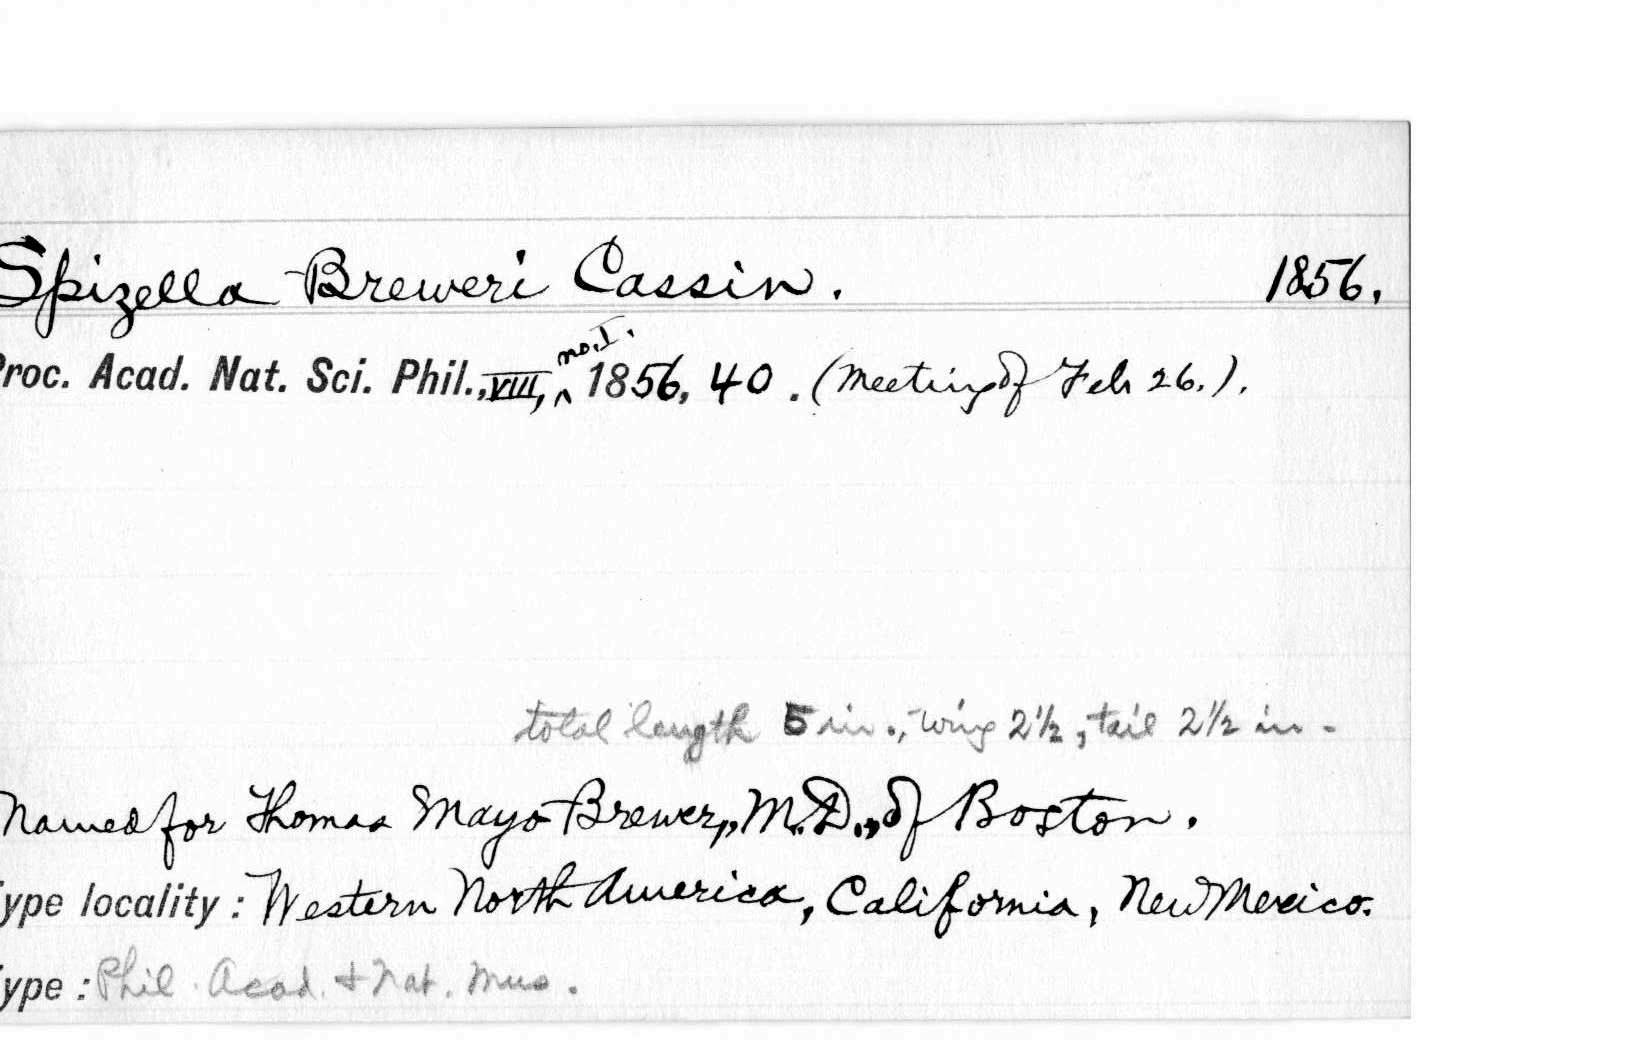 Spizella Breweri Cassin. 1856.
Proc. Acad. Nat. Sci. Phil., VIII, no. I. 1856, 40. (Meeting of Feb 26.).
total length 5 in., wing 2½, tail 2½ in.
Named for Thomas Mayo Brewer, M.D., of Boston.
Type locality: Western North America, California, New Mexico.
Type: Phil. Acad. & Nat. Mus.